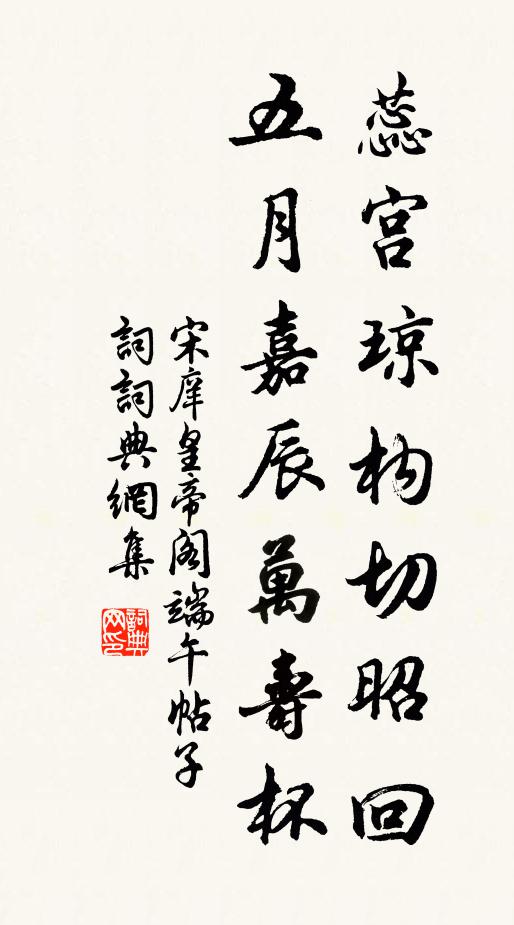 蕊宫琼构切昭回
五月嘉辰萬壽杯
宋庠皇帝阁端午帖子
詞詞典網集
詞典网印